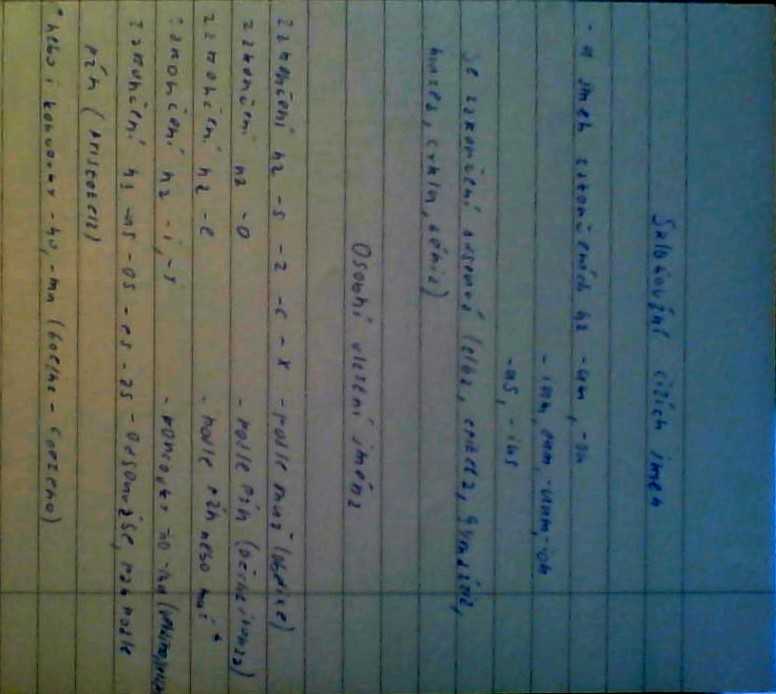 Skloňování cizích jmen
- u jmen zakončených na -um, -on
- ium, eum, -uum, -ion
-us, -ius
se zakončení odsouvá (alba, epiteta, gymnázia,
muzea, cykly, génia)
Osobní vlastní jména
zakončení na -s -z -c -x - podle muž
zakončení na -o - podle pán
zakončení na -e - podle pán nebo muž *
zakončení na -i, -y - koncovky -ho -mu
zakončení na -us -os -es -as - odsouváse, pak podle
pán (Aristotela)
* nebo i koncovky -ho, -mu (Goethe - Goetheho)